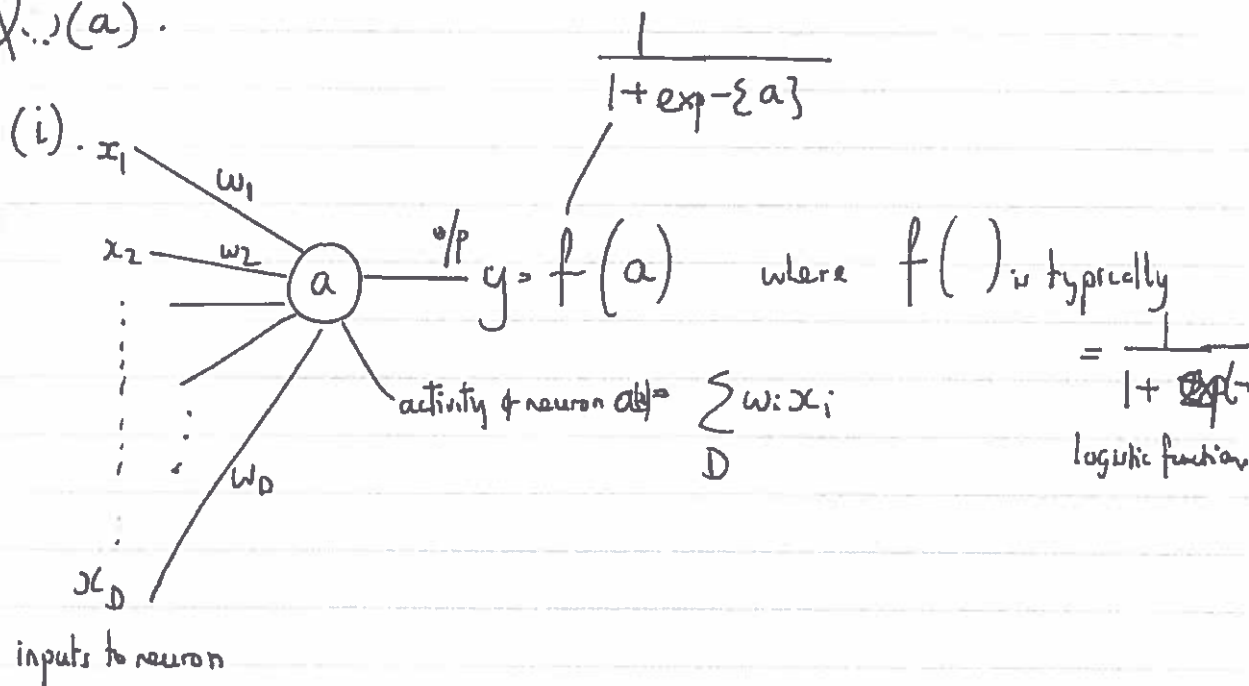 (a).
1
1 + exp-{a}
(i). x₁
w₁
x₂ w₂
a
o/p y = f(a) where f( ) is typically
= 1
1 +
logistic function
activity of neuron = ∑ wᵢxᵢ
D
w_D
x_D
inputs to neuron